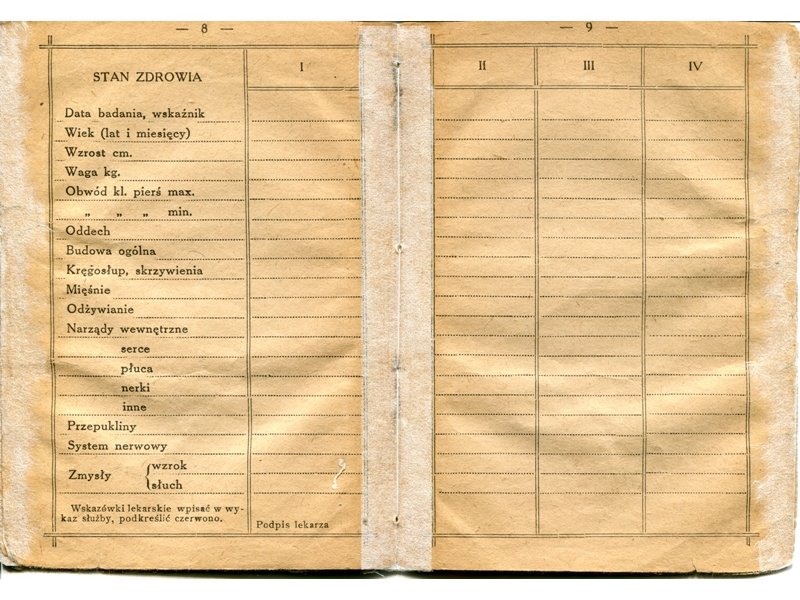 — 8 —
STAN ZDROWIA
I
Data badania, wskaźnik
Wiek (lat i miesięcy)
Wzrost cm.
Waga kg.
Obwód kl. pierś max.
„ „ „ min.
Oddech
Budowa ogólna
Kręgosłup, skrzywienia
Mięśnie
Odżywianie
Narządy wewnętrzne
serce
płuca
nerki
inne
Przepukliny
System nerwowy
Zmysły
wzrok
słuch
Wskazówki lekarskie wpisać w wy-
kaz służby, podkreślić czerwono.
Podpis lekarza
— 9 —
II III IV